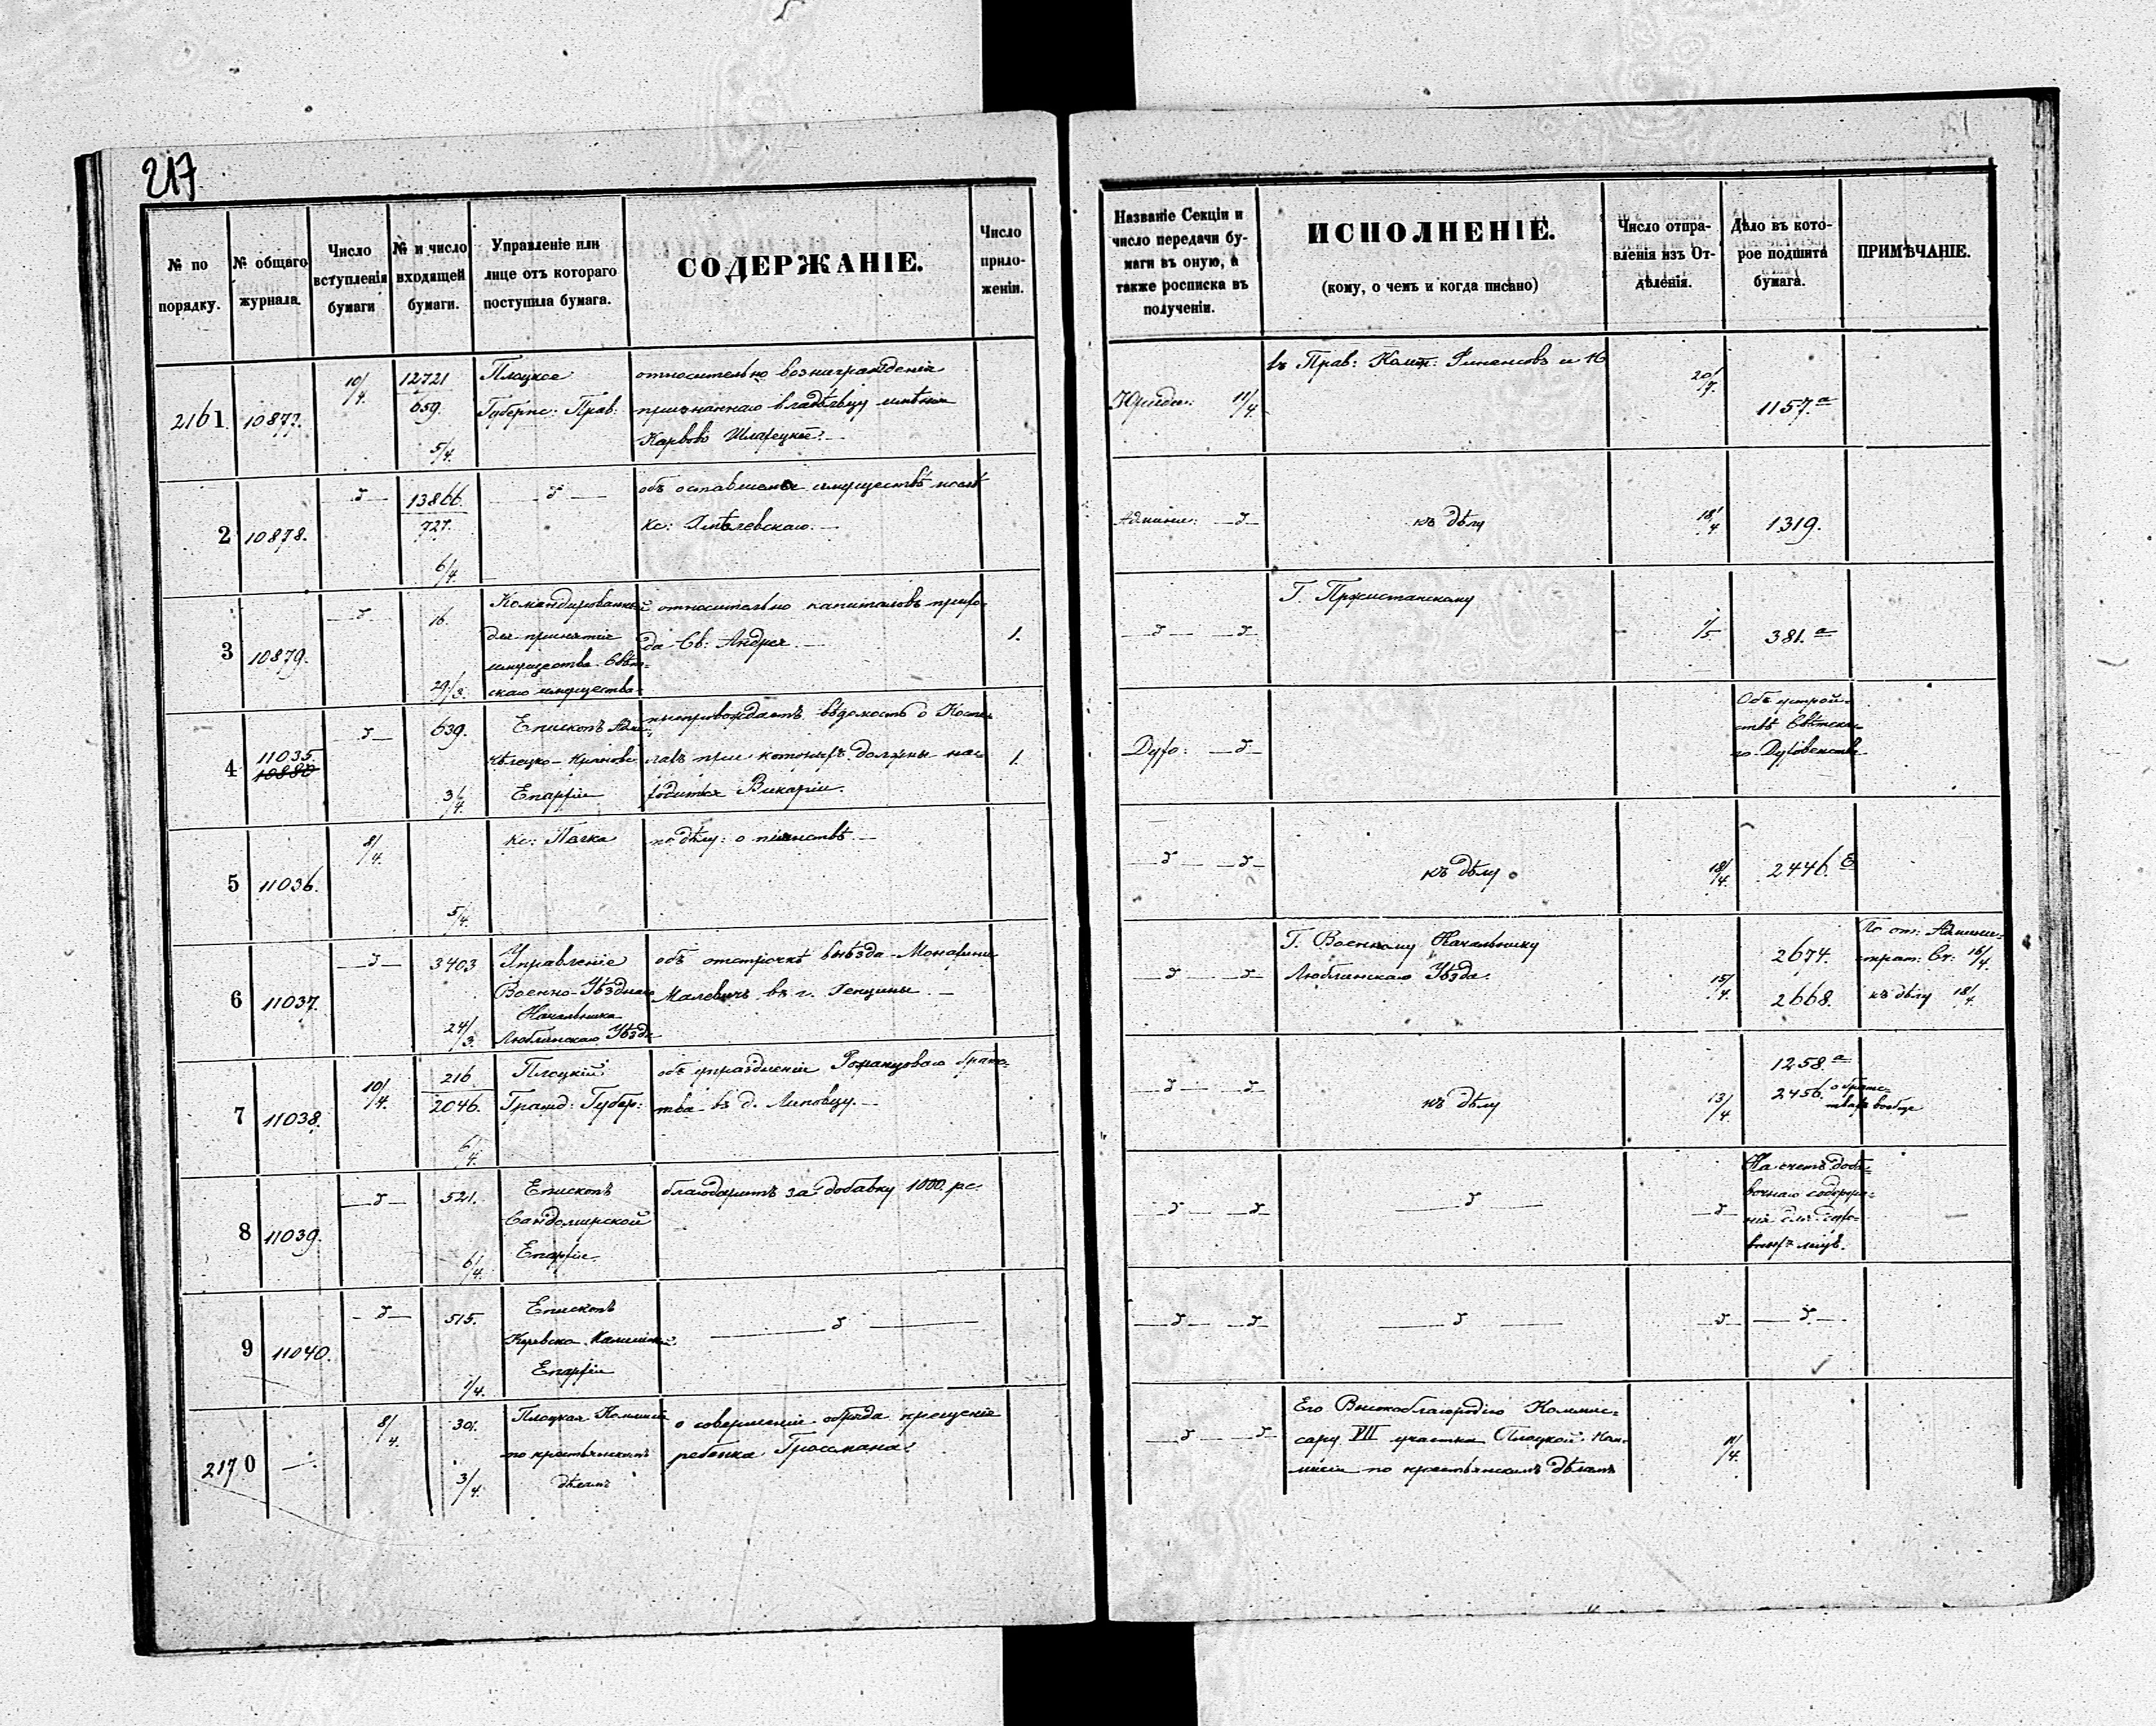 217
№ по
порядку.
№ общаго
журнала.
Число
вступленія
бумаги
№ и число
входящей
бумаги.
Управленіе или
лице отъ котораго
поступила бумага.
СОДЕРЖАНІЕ.
Число
прило-
женіи.
Названіе Секціи и
число передачи бу-
маги въ оную, а
также росписка въ
полученіи.
ИСПОЛНЕНІЕ.
(кому, о чемъ и когда писано)
Число отпра-
вленія изъ От-
дѣленія.
Дѣло въ кото-
рое подшита
бумага.
ПРИМѢЧАНІЕ.
2161
10877.
10/4.
12721
659.
5/4.
Плоцкое
Губернс: Прав:
относительно вознагражденія
признаннаго владѣльцу имѣнія
Карвово
Юриди: 11/4.
въ Прав: Ком: Финансовъ и
20/7.
1157.а
2
10878.
13866.
727.
6/4.
объ оставшемся имуществѣ послѣ
кс:
Админи:
къ дѣлу
18/4
1319.
3
10879.
16.
29/3.
Командированный
для принятія
имущества
скаго имущества
относительно капиталовъ прихо-
да Св: Андрея.
1.
Г.
1/5.
381.а
4
11035.
10880
639.
3/4.
Епископъ
Епархіи
препровождаетъ вѣдомость о Косте-
лахъ при которыхъ должны нахо-
дится Викаріи.
1.
Духо:
Объ устрой-
ствѣ Свѣтска-
го Духовенства
5
11036.
8/4.
5/4.
кс: Пачка
по дѣлу: о пьянствѣ.
къ дѣлу
18/4.
2446.
6
11037.
3403
24/3.
Управленіе
Военно-Уѣзднаго
Начальника
Люблинскаго Уѣзда
объ отсрочкѣ выѣзда Монахини
Малевичъ въ г.
Г. Военному Начальнику
Люблинскаго Уѣзда.
15/4.
2674.
2668.
По от: Админи-
страт: Ст: 16/4.
къ дѣлу 18/4.
7
11038.
10/4.
216
2046.
6/4.
Плоцкій
Гражд: Губер:
объ упраздненіи Рожанцоваго братс-
тва въ д. Липовцу.
къ дѣлу
13/4.
1258.а
2456. о братс-
твахъ вообще
8
11039.
521.
6/4.
Епископъ
Сандомирской
Епархіи.
благодаритъ за добавку 1000. рс.
На счетъ доба-
вочнаго содержа-
нія для духо-
вныхъ лицъ.
9
11040.
515.
1/4.
Епископъ
Епархіи
2170
8/4.
301.
3/4.
Плоцкая Коммисія
по крестьянскимъ
дѣламъ
о совершеніи обряда крещенія
ребенка Гроссмана.
Его Высокоблагородію Коммис-
сару VII участка Плоцкой Ком-
мисіи по крестьянскимъ дѣламъ
11/4.